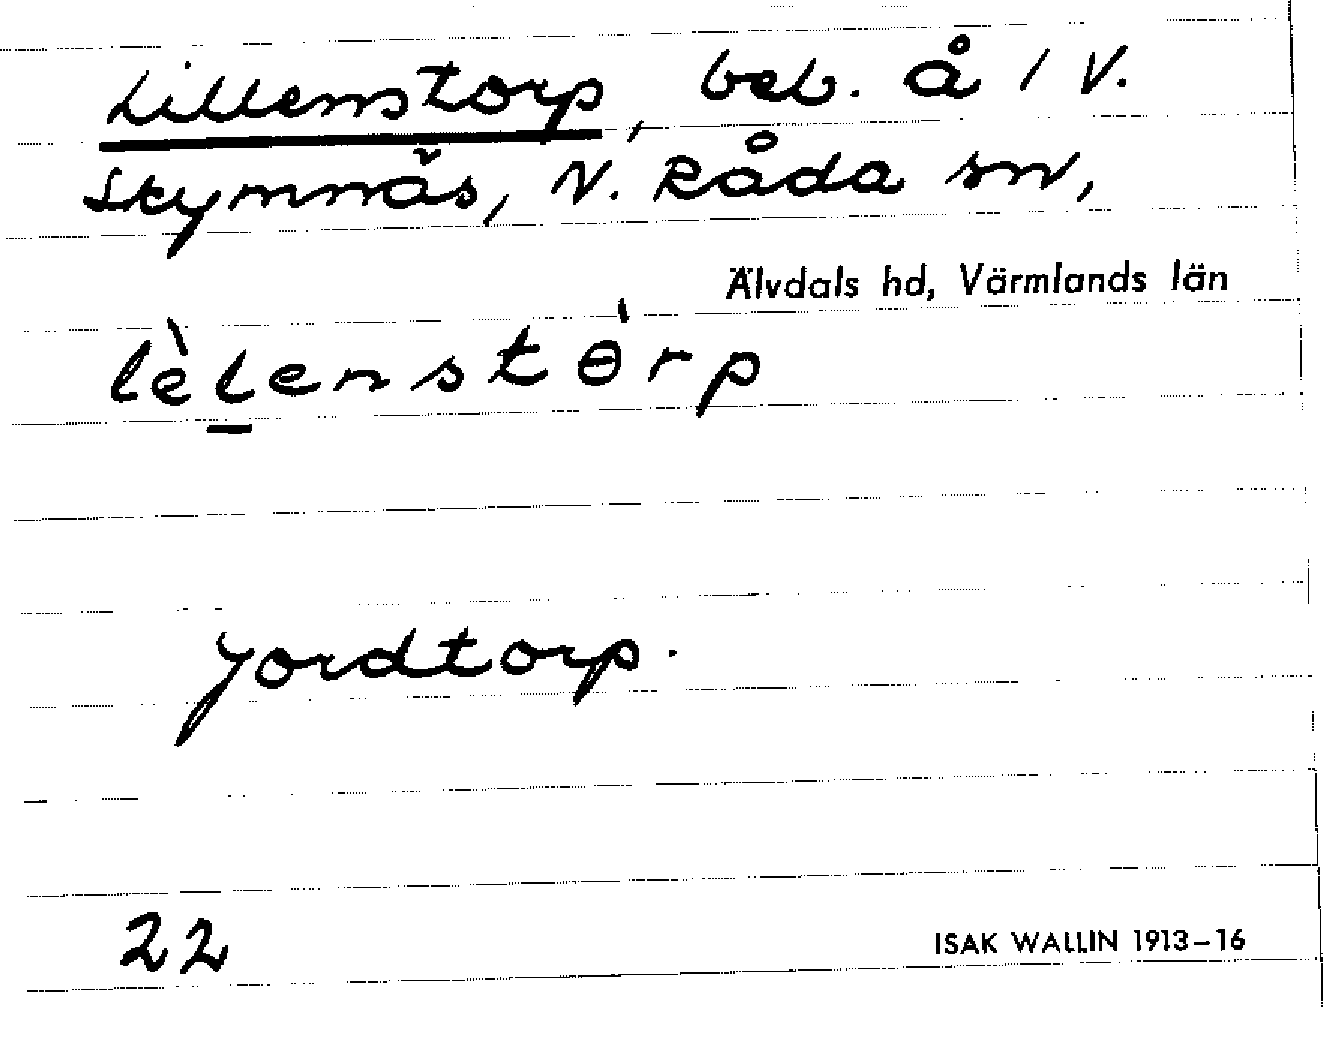 Lillenstorp, beb. å 1 V.
Skymnäs, N. Råda sn,
Älvdals hd, Värmlands län
lèlenstɵ̀rp
Jordtorp.
22
ISAK WALLIN 1913-16